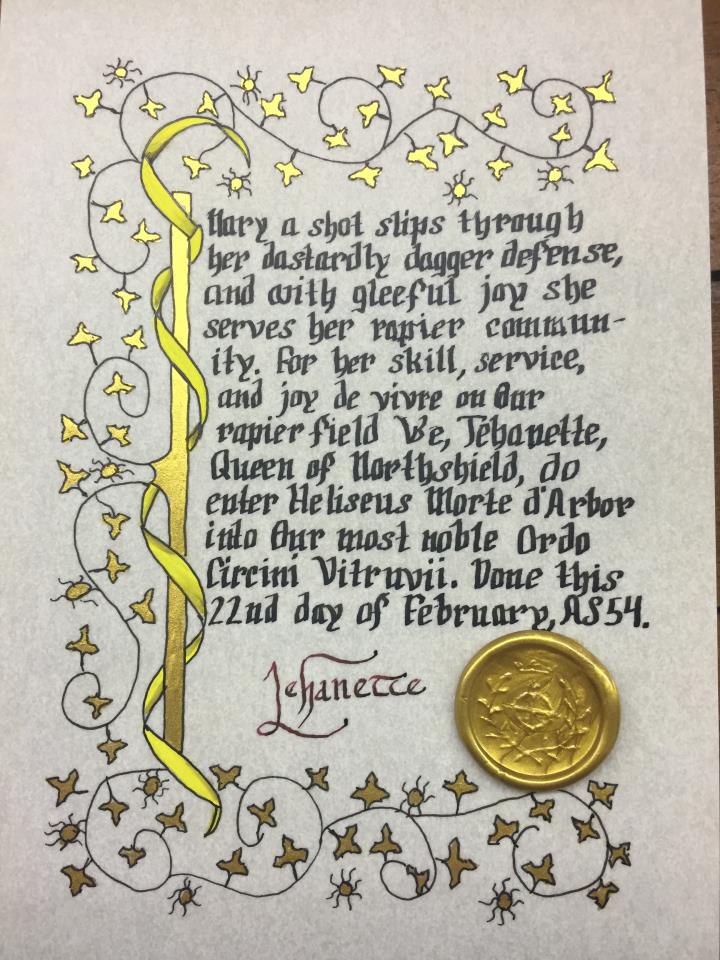 Nary a shot slips through
her dastardly dagger defense,
and with gleeful joy she
serves her rapier commun-
ity. For her skill, service,
and joy de vivre on Our
rapier field We, Tehanette,
Queen of Northshield, do
enter Heliseus Morte d'Arbor
into Our most noble Ordo
Circini Vitruvii. Done this
22nd day of February, AS 54.
Jehanette